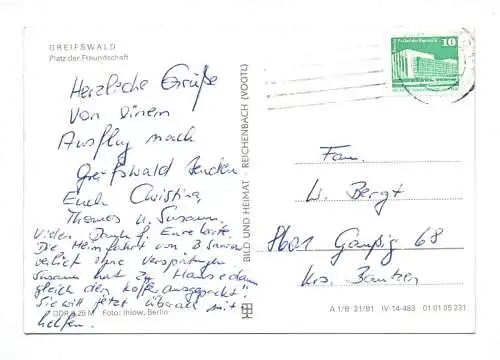 GREIFSWALD
Platz der Freundschaft
Herzliche Grüße
von einem
Ausflug nach
Greifswald senden
Euch Christina,
Thomas u. Susann.
Vielen Dank f. Eure Karte.
Die Heimfahrt von
verlief ohne Verspätungen.
Susann hat zu Hause dann
gleich den Koffer ausgepackt!
Sie will jetzt überall mit
helfen.
DDR 0,25 M Foto: Ihlow, Berlin
BILD UND HEIMAT · REICHENBACH (VOGTL)
10
Fam.
W. Bergt
8601 Gaußig 68
Krs. Bautzen
A 1/B 21/81 IV-14-483 01 01 05 231